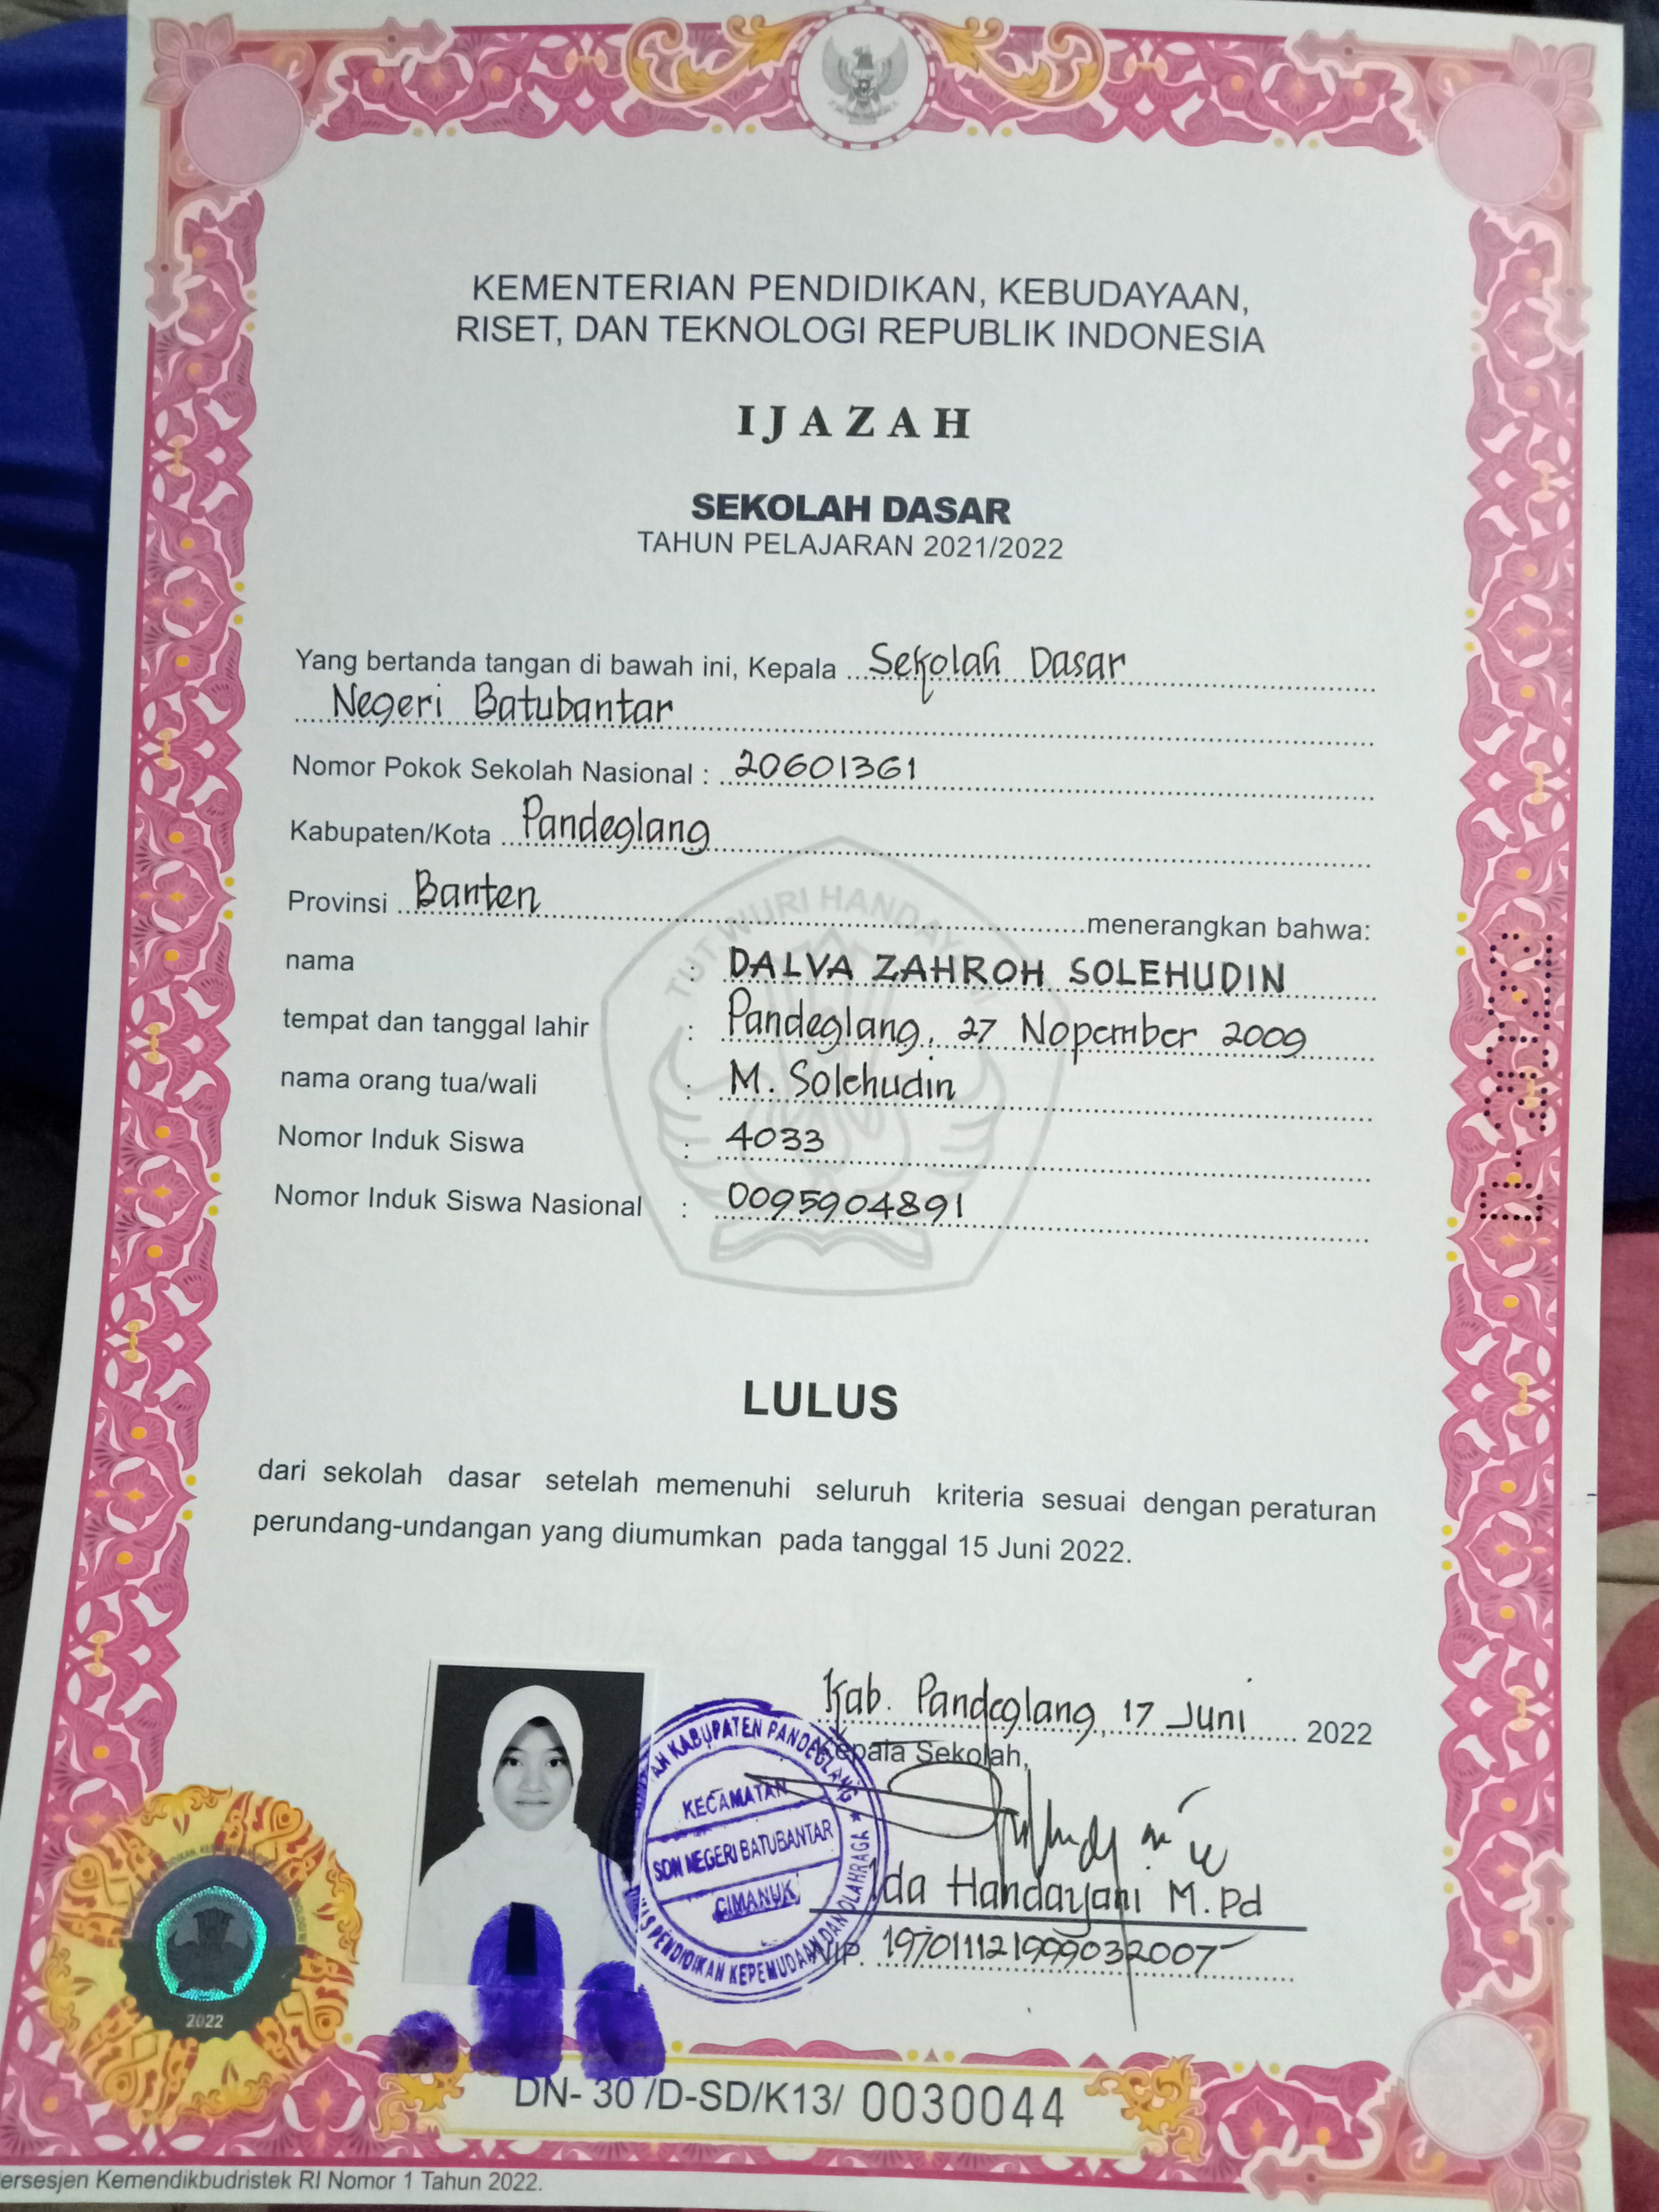 KEMENTERIAN PENDIDIKAN, KEBUDAYAAN,
RISET, DAN TEKNOLOGI REPUBLIK INDONESIA
IJAZAH
SEKOLAH DASAR
TAHUN PELAJARAN 2021/2022
Yang bertanda tangan di bawah ini, Kepala Sekolah Dasar
Negeri Batubantar
Nomor Pokok Sekolah Nasional : 20601361
Kabupaten/Kota Pandeglang
Provinsi Banten menerangkan bahwa:
nama : DALVA ZAHROH SOLEHUDIN
tempat dan tanggal lahir : Pandeglang, 27 Nopember 2009
nama orang tua/wali : M. Solehudin
Nomor Induk Siswa : 4033
Nomor Induk Siswa Nasional : 0095904891
TUT WURI HANDAYANI
LULUS
dari sekolah dasar setelah memenuhi seluruh kriteria sesuai dengan peraturan
perundang-undangan yang diumumkan pada tanggal 15 Juni 2022.
Kab. Pandeglang, 17 Juni 2022
Kepala Sekolah,
KABUPATEN PANDEGLANG
KECAMATAN
SDN NEGERI BATUBANTAR
CIMANUK
PENDIDIKAN KEPEMUDAAN DAN OLAHRAGA
Ida Handayani M.Pd
NIP. 197011121999032007
2022
DN- 30 /D-SD/K13/ 0030044
ersesjen Kemendikbudristek RI Nomor 1 Tahun 2022.